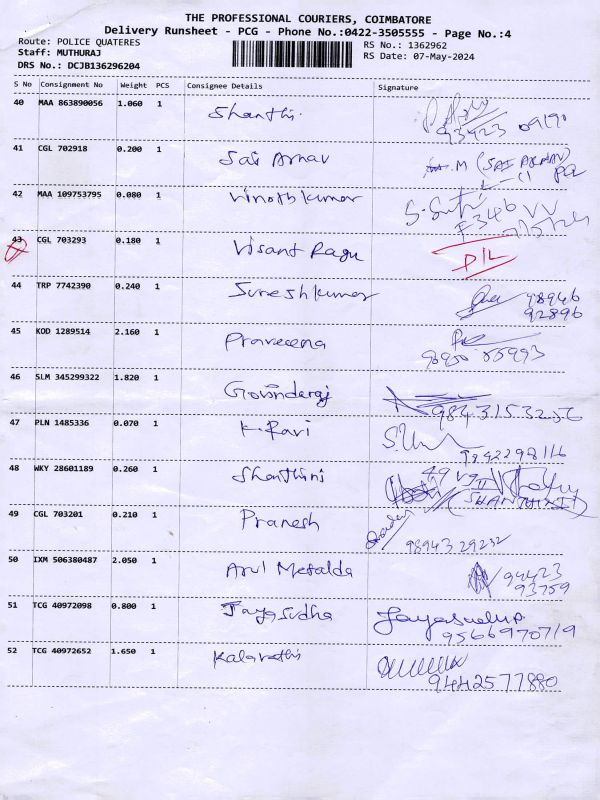 THE PROFESSIONAL COURIERS, COIMBATORE
Delivery Runsheet - PCG - Phone No.:0422-3505555 - Page No.:4
Route: POLICE QUATERES
RS No.: 1362962
Staff: MUTHURAJ
RS Date: 07-May-2024
DRS No.: DCJB136296204
S No Consignment No Weight PCS Consignee Details Signature
40 MAA 863890056 1.060 1 Shanthi.
93423 09190
41 CGL 702918 0.200 1 Sai Arnav
M (SAI ARNAV)
42 MAA 109753795 0.080 1 Vinothkumar
F346
43 CGL 703293 0.180 1 Visant Ragu D/L
44 TRP 7742390 0.240 1 Sureshkumar 98946
92896
45 KOD 1289514 2.160 1 Praveena
46 SLM 345299322 1.820 1 Govindaraj
47 PLN 1485336 0.070 1 K. Ravi
48 WKY 28601189 0.260 1 Shanthini
(SHANTHINI)
49 CGL 703201 0.210 1 Pranesh
98943 29232
50 IXM 506380487 2.050 1 Arul Mefalda 94423
93759
51 TCG 40972098 0.800 1 Jayasudha Jayasudha
9566970719
52 TCG 40972652 1.650 1 Kalavathi
9442577880